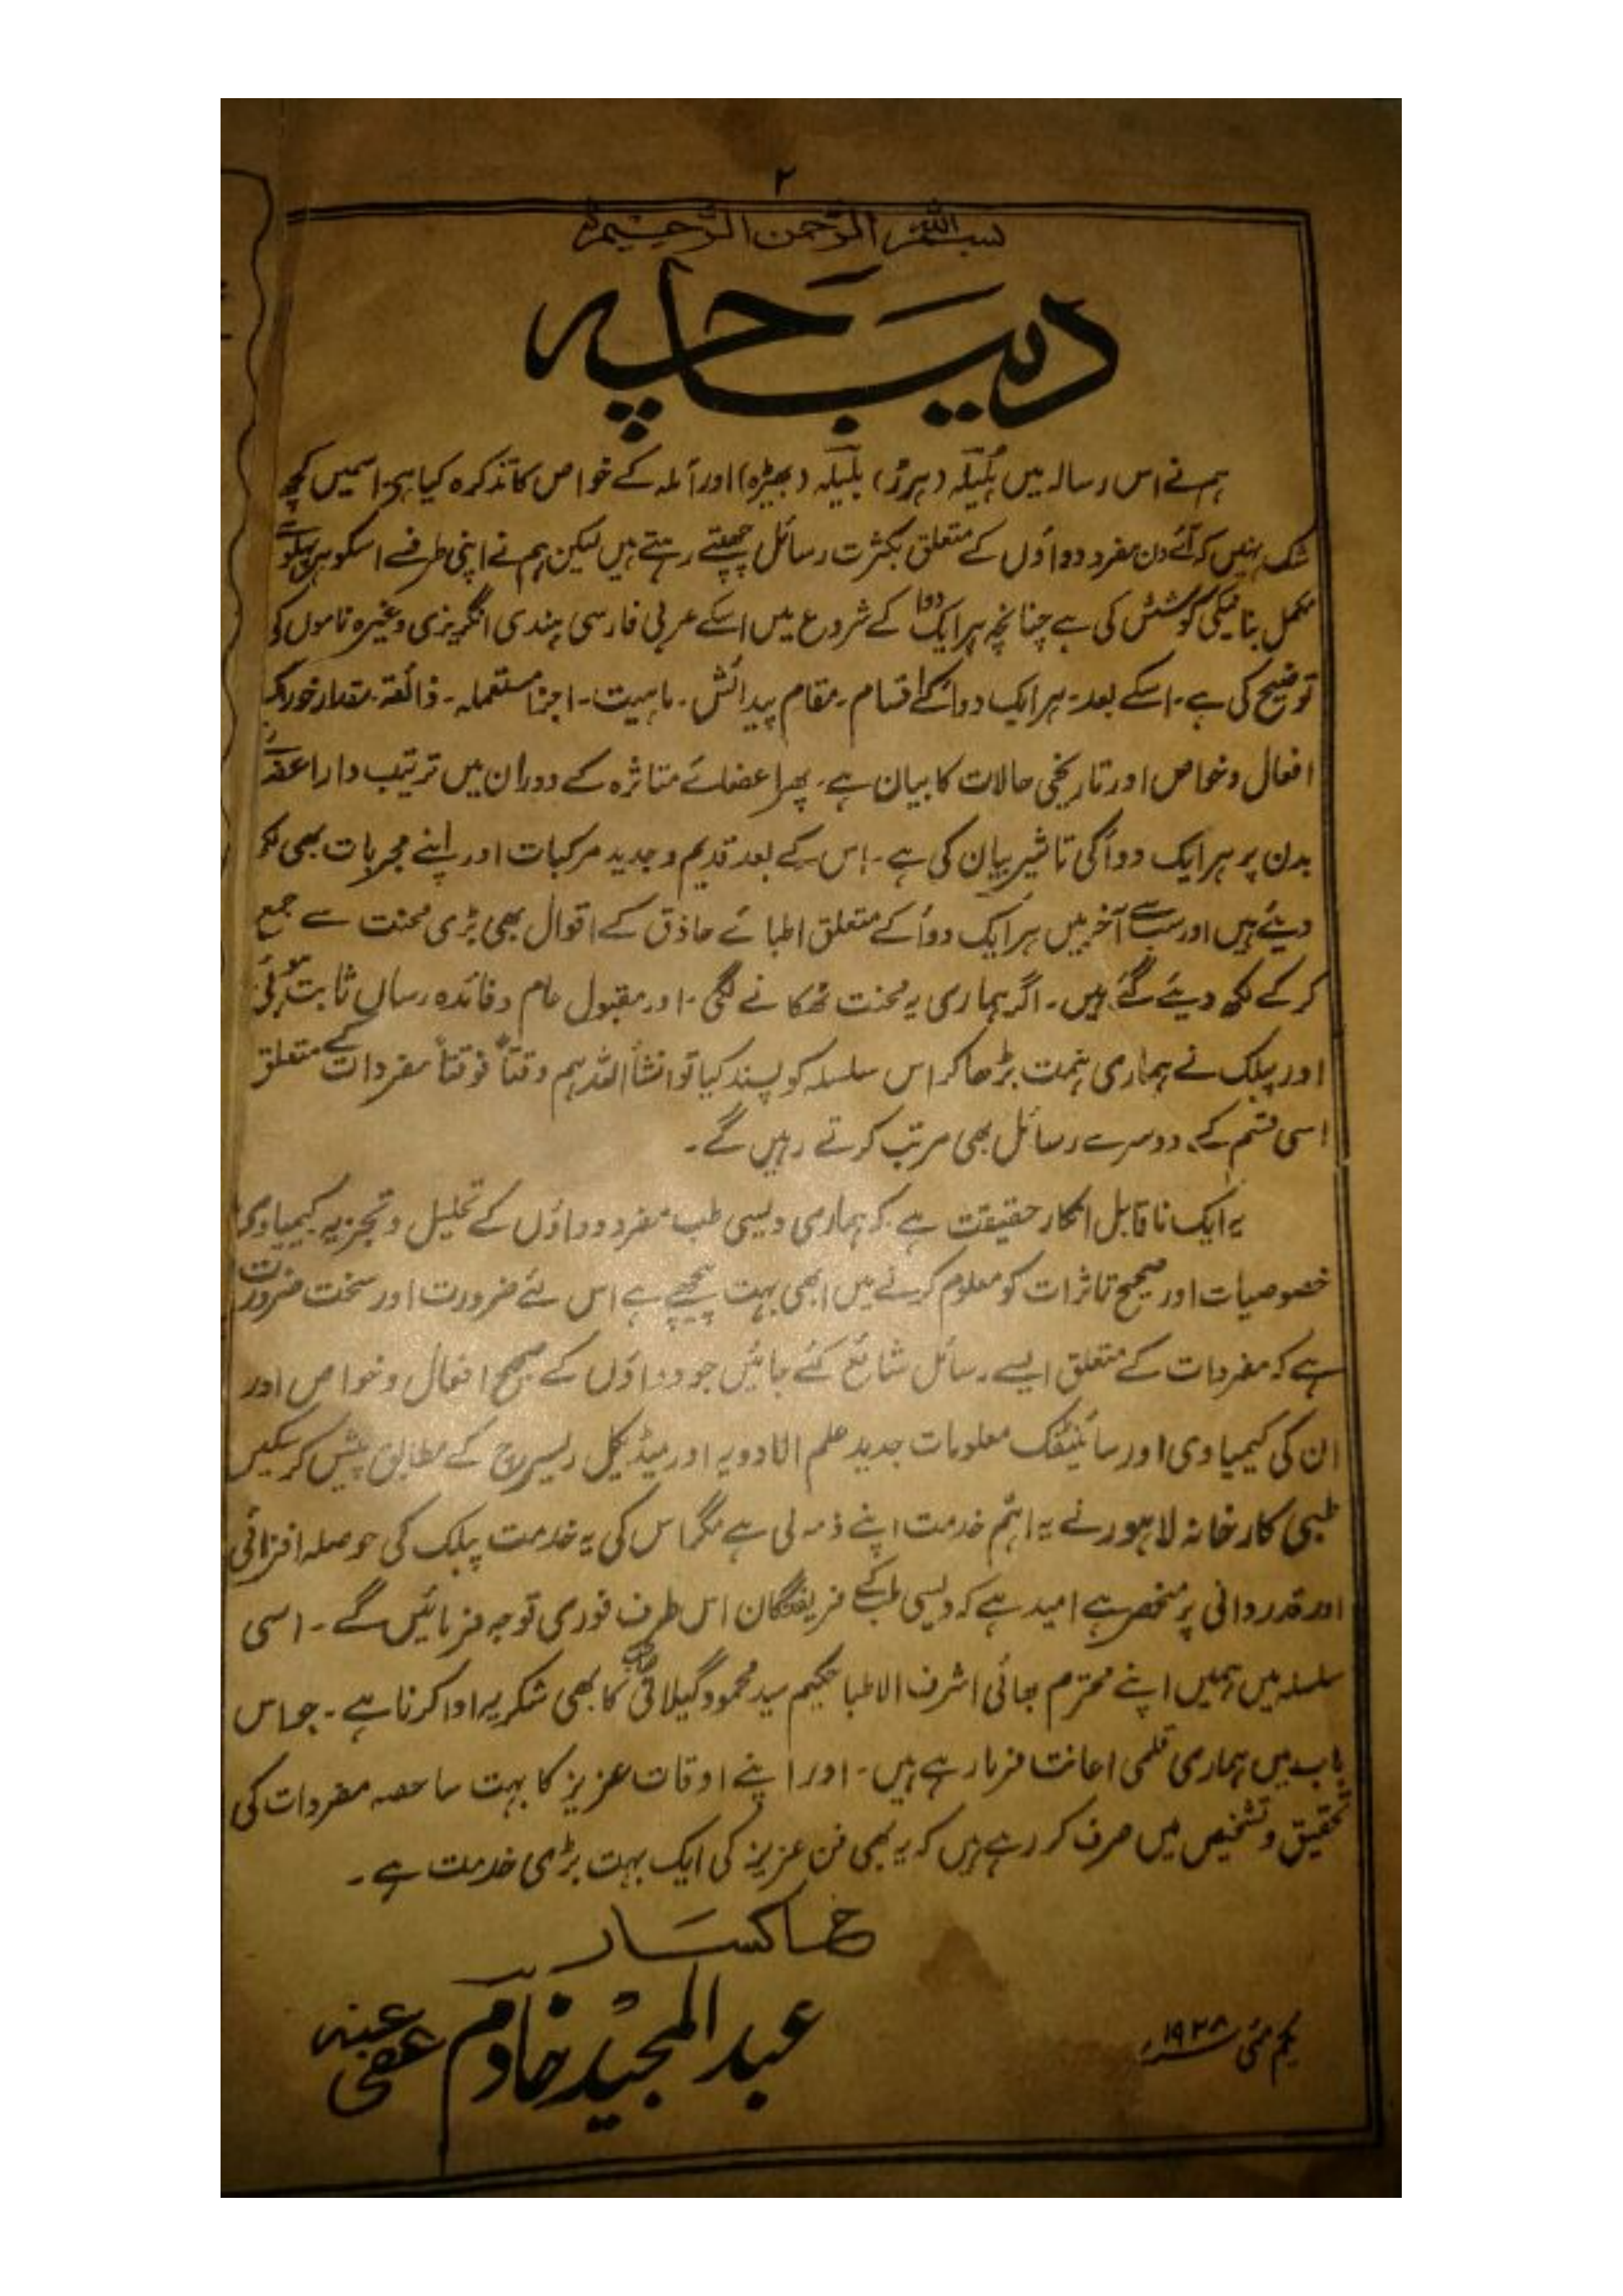 ۲
بسم اللہ الرحمن الرحیم
دیباچہ
ہم نے اس رسالہ میں ہلیلہ (ہرڑ) بلیلہ (بھیڑہ) اور آملہ کے خواص کا تذکرہ کیا ہے۔ اسمیں کچھ
شک نہیں کہ آئے دن مفرد دواؤں کے متعلق بکثرت رسائل چھپتے رہتے ہیں لیکن ہم نے اپنی طرف سے اسکو ہر پہلو سے
مکمل بنانیکی کوشش کی ہے چنانچہ ہر ایک دوا کے شروع میں اسکے عربی فارسی ہندی انگریزی وغیرہ ناموں کی
توضیح کی ہے۔ اسکے بعد۔ ہر ایک دوا کے اقسام۔ مقام پیدائش۔ ماہیت۔ اجزا مستعملہ۔ ذائقہ۔ مقدار خوراک
افعال و خواص اور تاریخی حالات کا بیان ہے۔ پھر اعضائے متاثرہ کے دوران میں ترتیب وار اعضائے
بدن پر ہر ایک دوا کی تاثیر بیان کی ہے۔ اس کے بعد قدیم و جدید مرکبات اور اپنے مجربات بھی لکھ
دیئے ہیں اور سب سے آخر میں ہر ایک دوا کے متعلق اطبائے حاذق کے اقوال بھی بڑی محنت سے جمع
کر کے لکھ دیئے گئے ہیں۔ اگر ہماری یہ محنت ٹھکانے لگی۔ اور مقبول عام و فائدہ رساں ثابت ہوئی
اور پبلک نے ہماری ہمت بڑھا کر اس سلسلہ کو پسند کیا تو انشاء اللہ ہم وقتاً فوقتاً مفردات کے متعلق
اسی قسم کے دوسرے رسائل بھی مرتب کرتے رہیں گے۔
یہ ایک ناقابل انکار حقیقت ہے کہ ہماری دیسی طب مفرد دواؤں کے تحلیل و تجزیہ کیمیاوی
خصوصیات اور صحیح تاثرات کو معلوم کرنے میں ابھی بہت پیچھے ہے اس لئے ضرورت اور سخت ضرورت
ہے کہ مفردات کے متعلق ایسے رسائل شائع کئے جائیں جو دواؤں کے صحیح افعال و خواص اور
ان کی کیمیاوی اور سائنٹفک معلومات جدید علم الادویہ اور میڈیکل ریسرچ کے مطابق پیش کر سکیں
طبی کارخانہ لاہور نے یہ اہم خدمت اپنے ذمہ لی ہے مگر اس کی یہ خدمت پبلک کی حوصلہ افزائی
اور قدردانی پر منحصر ہے امید ہے کہ دیسی طب کے فریفتگان اس طرف فوری توجہ فرمائیں گے۔ اسی
سلسلہ میں ہمیں اپنے محترم بھائی اشرف الاطبا حکیم سید محمود گیلانی صاحب کا بھی شکریہ ادا کرنا ہے۔ جو اس
باب میں ہماری قلمی اعانت فرما رہے ہیں۔ اور اپنے اوقات عزیز کا بہت سا حصہ مفردات کی
تحقیق و تشخیص میں صرف کر رہے ہیں کہ یہ بھی فن عزیز کی ایک بہت بڑی خدمت ہے۔
خاکسار
عبدالمجید خادم عفی عنہ
یکم مئی ۱۹۳۸ء